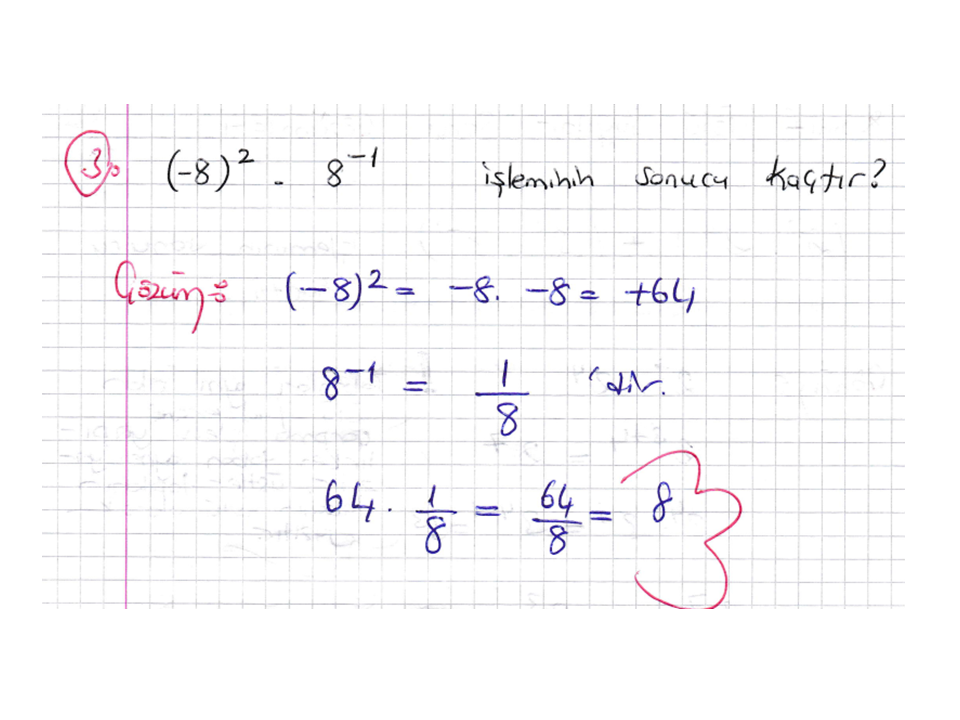 3. (-8)² . 8⁻¹ işleminin sonucu kaçtır?
Çözüm: (-8)² = -8. -8 = +64
8⁻¹ = 1/8 'dir.
64 . 1/8 = 64/8 = 8